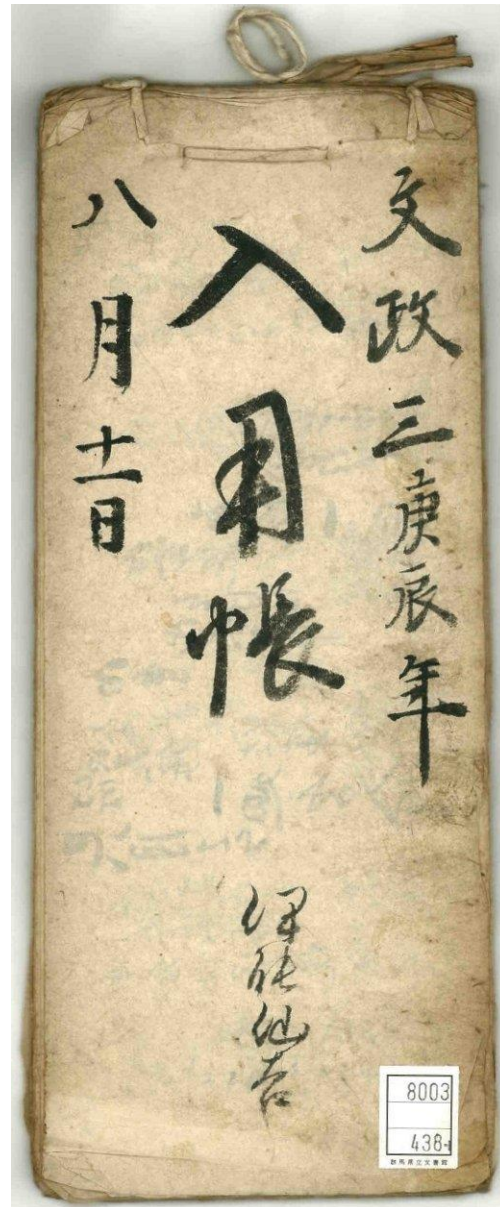 文政三庚辰年
入用帳
八月十一日
伊能仙吉
8003
436-1
群馬県立文書館